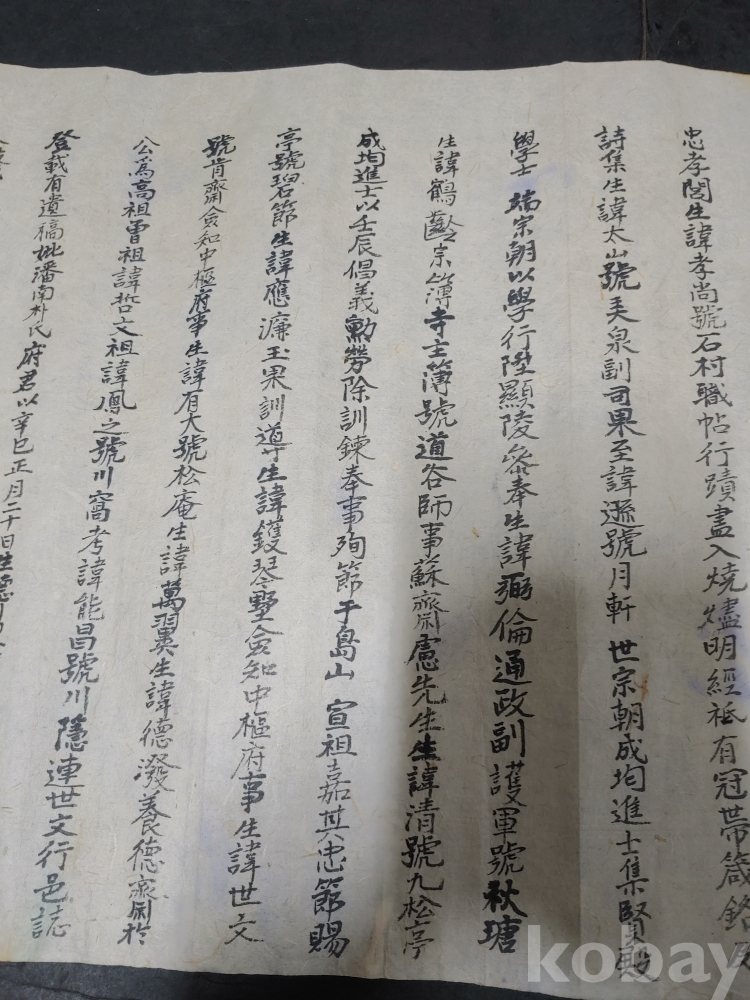 忠孝閤生諱孝尚號石村職帖行蹟盡入燒燼明經祗有冠世帶箴銘及
詩集生諱太山號美泉訓司果至諱遜號月軒 世宗朝成均進士集賢殿
學士 端宗朝以學行陞顯陵參奉生諱弼倫通政副護軍號秋塘
生諱鶴齡宗簿寺主簿號道谷師事蘇齋盧先生生諱清號九松亭
成均進士以壬辰倡義勳勞除訓鍊奉事殉節于島山 宣祖嘉其忠節賜
亭號碧節生諱應濂玉果訓導生諱鑊琴墅僉知中樞府事生諱世文
號肯齋僉知中樞府事生諱有大號松庵生諱萬翼生諱德潑養德齋用於
公爲高祖曾祖諱哲文祖諱鳳之號川窩考諱能昌號川隱連世文行邑誌
登載有遺稿妣潘南朴氏府君以辛巳正月二十日生
kobay